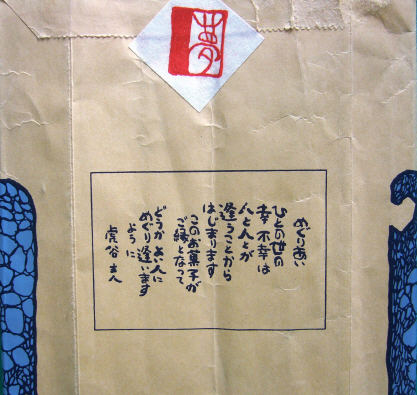 夢
めぐりあい
ひとの世の
幸 不幸は
人と人とが
逢うことから
はじまります
このお菓子が
ご縁となって
どうか よい人に
めぐり逢います
ように
虎谷 主人